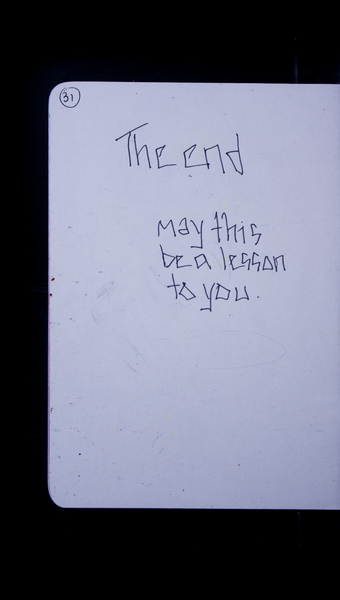 31
The end
may this
be a lesson
to you.